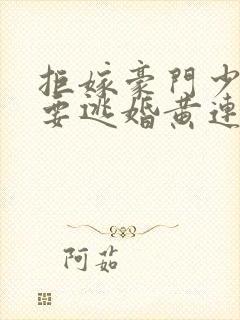 拒嫁豪門少
要逃婚黄連
阿茹